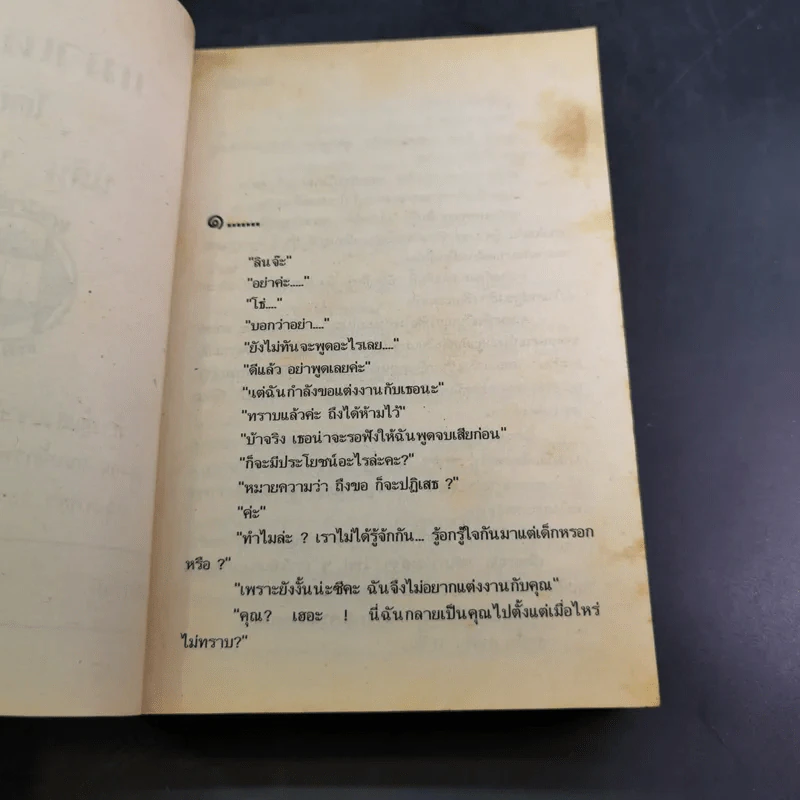 ๑.......
"ลินจ๊ะ"
"อย่าค่ะ....."
"โธ่...."
"บอกว่าอย่า...."
"ยังไม่ทันจะพูดอะไรเลย...."
"ดีแล้ว อย่าพูดเลยค่ะ"
"แต่ฉันกำลังขอแต่งงานกับเธอนะ"
"ทราบแล้วค่ะ ถึงได้ห้ามไว้"
"บ้าจริง เธอน่าจะรอฟังให้ฉันพูดจบเสียก่อน"
"ก็จะมีประโยชน์อะไรล่ะคะ?"
"หมายความว่า ถึงขอ ก็จะปฏิเสธ ?"
"ค่ะ"
"ทำไมล่ะ ? เราไม่ได้รู้จักกัน... รู้อกรู้ใจกันมาแต่เด็กหรอก
หรือ ?"
"เพราะยังงั้นน่ะซีคะ ฉันจึงไม่อยากแต่งงานกับคุณ"
"คุณ? เฮอะ ! นี่ฉันกลายเป็นคุณไปตั้งแต่เมื่อไหร่
ไม่ทราบ?"